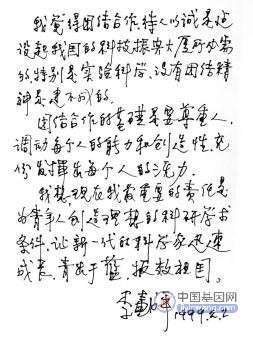 我觉得团结合作,待人以诚是建
设起我国的科技振兴大厦所必需
的,特别是实验科学,没有团结精
神是建不成的。
团结合作的基础是要尊重人,
调动每个人的能力和创造性,充
份发挥出每个人的活力。
我想,现在我最重要的责任是
为青年人创造理想的科研学术
条件,让新一代的科学家迅速
成长,青出于蓝,报效祖国。
李
1997.2.2
中国基因网